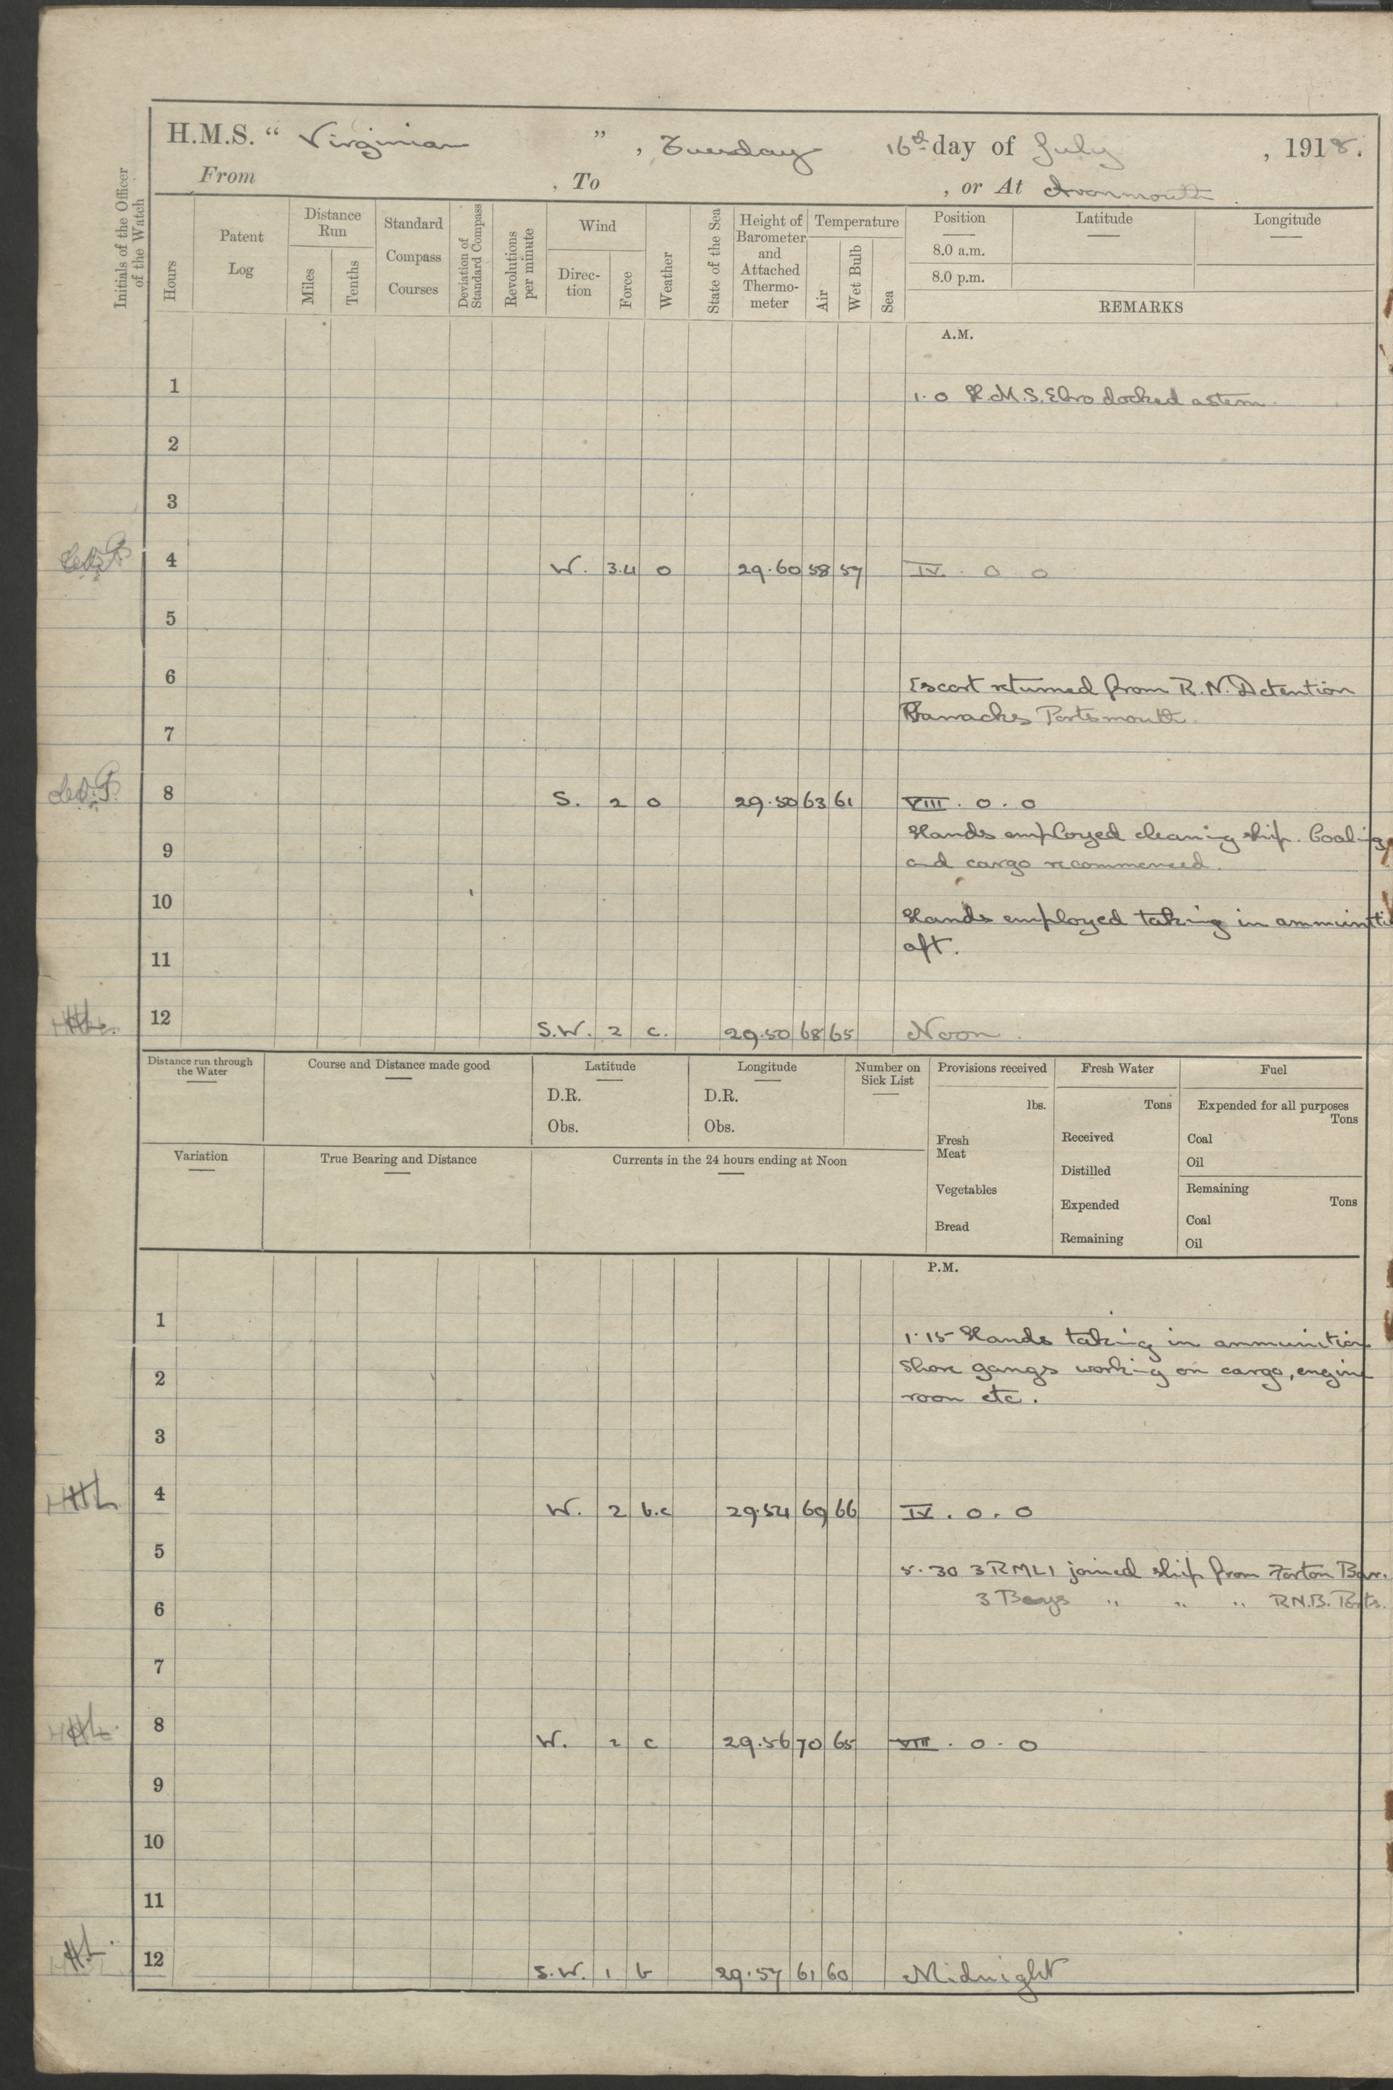 H.M.S. “ Virginian ”, Tuesday 16th day of July, 1918.
From , To , or At Avonmouth
Initials of the Officer of the Watch
Hours
Patent Log
Distance Run
Miles
Tenths
Standard Compass Courses
Deviation of Standard Compass
Revolutions per minute
Wind
Direc-tion
Force
Weather
State of the Sea
Height of Barometer and Attached Thermo-meter
Temperature
Air
Wet Bulb
Sea
Position
Latitude
Longitude
8.0 a.m.
8.0 p.m.
REMARKS
A.M.
1 1.0 H.M.S. Ebro docked astern.
2
3
4 W. 3.4 o 29.60 58 57 IV. 0 0
5
6 Escort returned from R.N. Detention
Barracks Portsmouth.
7
8 S. 2 o 29.50 63 61 VIII. 0. 0
Hands employed cleaning ship. Coaling
9 and cargo recommenced.
10 Hands employed taking in ammuniti
11 aft.
HHL. 12 S.W. 2 c. 29.50 68 65 Noon.
Distance run through the Water
Course and Distance made good
Latitude
D.R.
Obs.
Longitude
D.R.
Obs.
Number on Sick List
Provisions received
lbs.
Fresh Meat
Vegetables
Bread
Fresh Water
Tons
Received
Distilled
Expended
Remaining
Fuel
Expended for all purposes
Tons
Coal
Oil
Remaining
Tons
Coal
Oil
Variation
True Bearing and Distance
Currents in the 24 hours ending at Noon
P.M.
1 1.15 Hands taking in ammunition
2 Shore gangs working on cargo, engine
room etc.
3
HHL 4 W. 2 b.c 29.54 69 66 IV. 0. 0
5 5.30 3 RMLI joined ship from Forton Bar.
6 3 Boys " " " R.N.B. Ports.
7
HHL. 8 W. 2 c 29.56 70 65 VIII. 0. 0
9
10
11
HL. 12 S.W. 1 b 29.57 61 60 Midnight